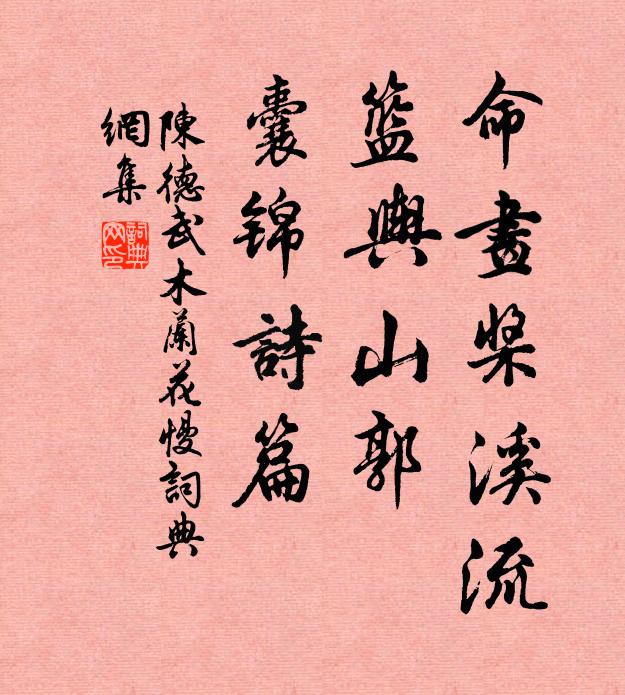 命畫槳溪流
籃輿山郭
囊錦詩篇
陳德武木蘭花慢詞典
網集
詞典網印